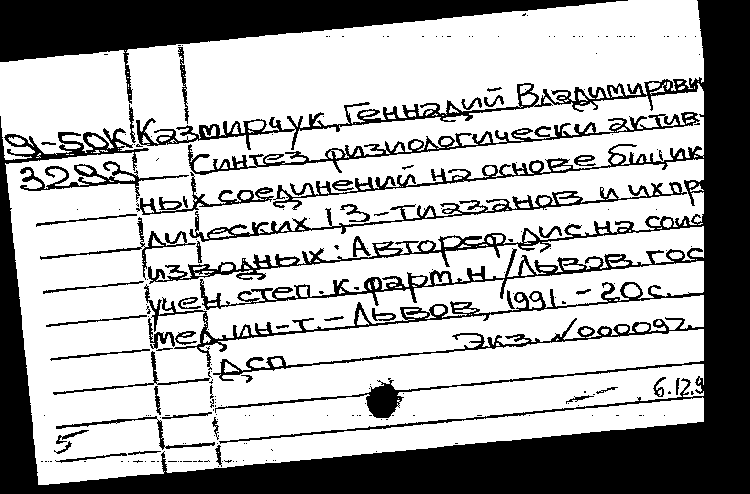 91-50К Казмирчук, Геннадий Владимирович
3292 Синтез физиологически актив-
ных соединений на основе бицик
лических 1,3-тиазанов и их про
изводных: Автореф. дис. на соиск
учен. степ. к. фарм. н. /Львов. гос
мед. ин-т. - Львов, 1991. - 20 с.
ДСП Экз. √000092.
6.12.9
5